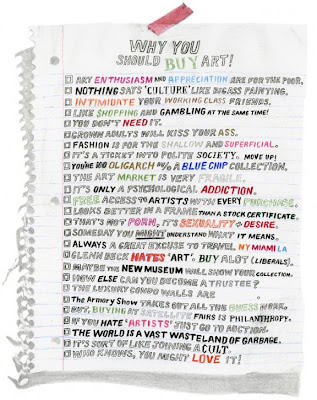 WHY YOU
SHOULD BUY ART!
ART ENTHUSIASM AND APPRECIATION ARE FOR THE POOR.
NOTHING SAYS 'CULTURE' LIKE BIGASS PAINTING.
INTIMIDATE YOUR WORKING CLASS FRIENDS.
LIKE SHOPPING AND GAMBLING AT THE SAME TIME!
YOU DON'T NEED IT.
GROWN ADULTS WILL KISS YOUR ASS.
FASHION IS FOR THE SHALLOW AND SUPERFICIAL.
IT'S A TICKET INTO POLITE SOCIETY. MOVE UP!
YOU'RE NO OLIGARCH W/O A BLUE CHIP COLLECTION.
THE ART MARKET IS VERY FRAGILE.
IT'S ONLY A PSYCHOLOGICAL ADDICTION.
FREE ACCESS TO ARTISTS WITH EVERY PURCHASE.
LOOKS BETTER IN A FRAME THAN A STOCK CERTIFICATE.
THAT'S NOT PORN, IT'S SEXUALITY + DESIRE.
SOMEDAY YOU MIGHT UNDERSTAND WHAT IT MEANS.
ALWAYS A GREAT EXCUSE TO TRAVEL. NY MIAMI LA
GLENN BECK HATES 'ART'. BUY ALOT (LIBERALS).
MAYBE THE NEW MUSEUM WILL SHOW YOUR COLLECTION.
HOW ELSE CAN YOU BECOME A TRUSTEE?
THE LUXURY CONDO WALLS ARE
The Armory Show TAKES OUT ALL THE GUESS WORK.
BUY, BUYING AT SATELLITE FAIRS IS PHILANTHROPY.
IF YOU HATE 'ARTISTS' JUST GO TO AUCTION.
THE WORLD IS A VAST WASTELAND OF GARBAGE.
IT'S SORT OF LIKE JOINING A CULT.
WHO KNOWS, YOU MIGHT LOVE IT!